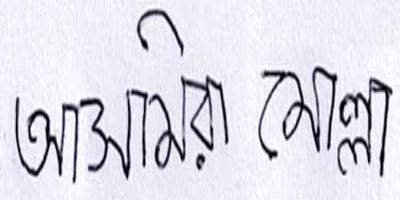 আসামিরা মোল্লা